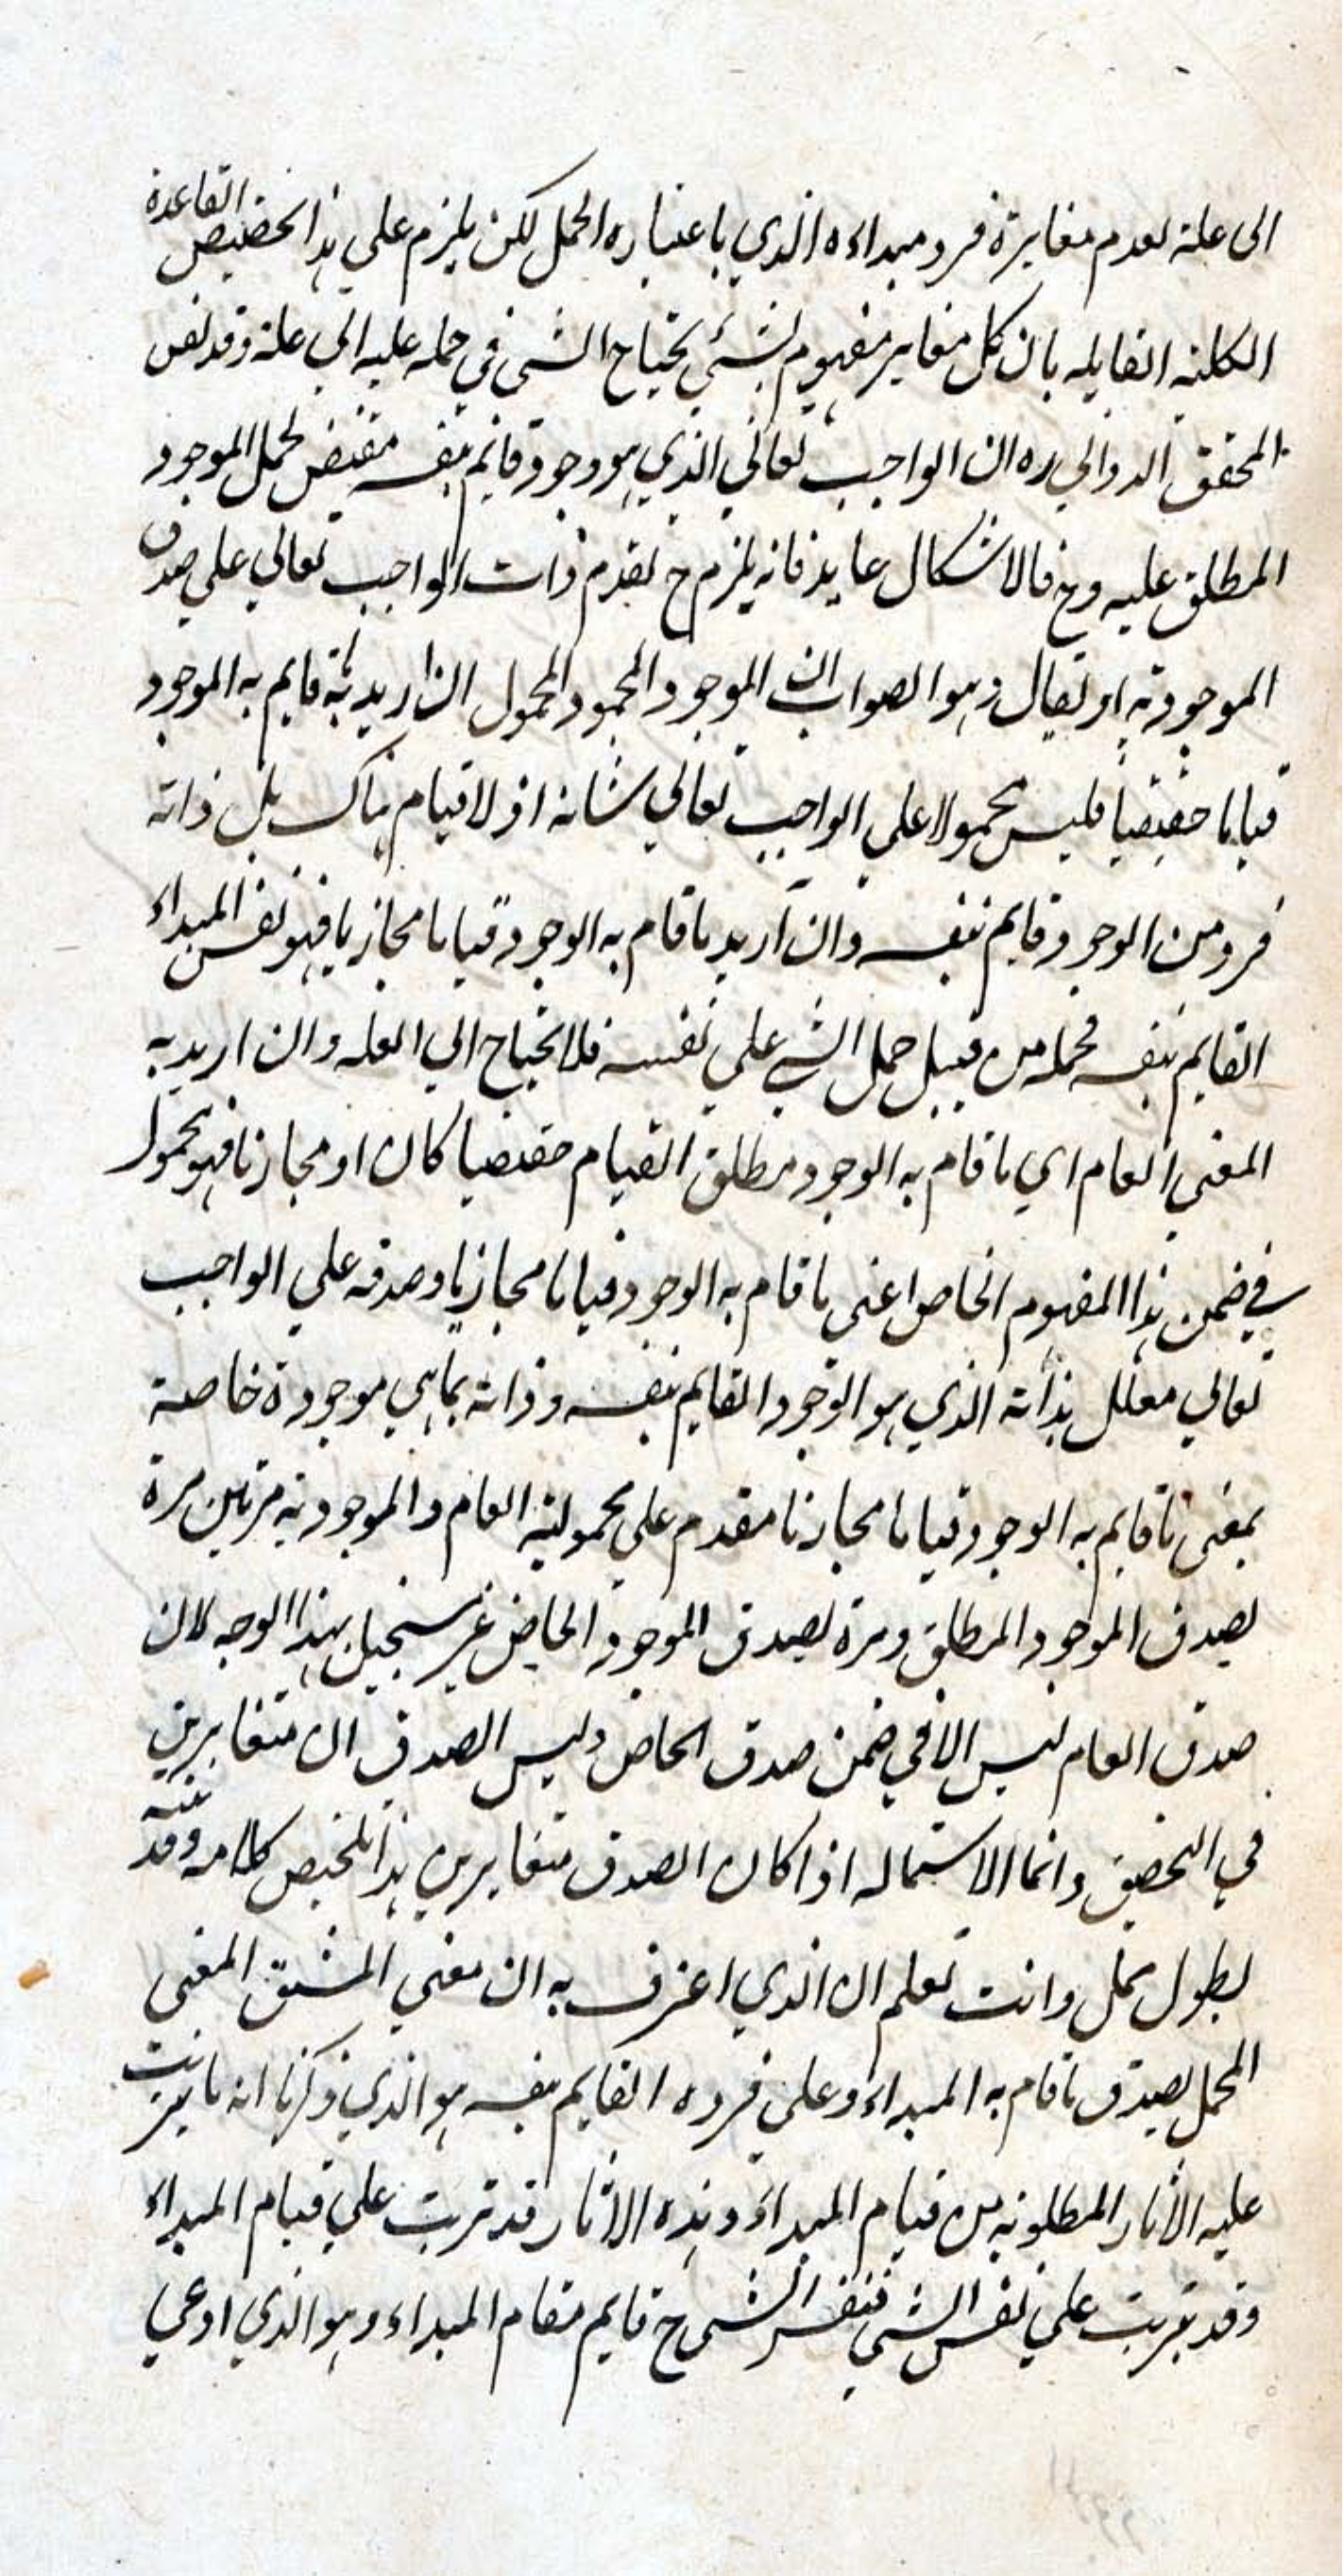 الى علة لعدم مغايرة فرد مبداءه الذي باعتباره الحمل لكن يلزم علي هذا تخصيص القاعدة
الكلية القايله بان كل مغاير مفهوم لشئ يحتاج الشي في حمله عليه الي علة وقد نص
المحقق الدواني ره ان الواجب تعالي الذي هو وجود قايم بنفسه مقتض لحمل الموجود
المطلق عليه وح فالاشكال عايد فانه يلزم ح تقدم ذات الواجب تعالي علي صدق
الموجودية او يقال وهو الصواب ان الموجود المحمول ان اريد به قايم به الموجود
قياما حقيقيا فليس محمولا علي الواجب تعالي شانه اذ لا قيام هناك بل ذاته
فرد من الوجود قايم بنفسه وان اريد ما قام به الوجود قياما مجازيا فهو نفس المبداء
القايم بنفسه فحمله من قبيل حمل الشي علي نفسه فلا يحتاج الي العله وان اريد به
المعني العام اي ما قام به الوجود مطلق القيام حقيقيا كان او مجازيا فهو محمول
في ضمن هذا المفهوم الخاص اعني ما قام به الوجود قياما مجازيا وصدقه علي الواجب
تعالي معلل بذاته الذي هو الوجود القايم بنفسه وذاته بما هي موجودة خاصة
بمعنى ما قايم به الوجود قياما مجازيا مقدم علي محمولية العام والموجودية مرتين مرة
بصدق الموجود المطلق ومرة بصدق الموجود الخاص غير مستحيل بهذا الوجه لان
صدق العام ليس الا في ضمن صدق الخاص وليس الصدق ان متغايرين
في التحقيق وانما الاستحاله اذا كان الصدق متغايرين هذا تلخيص كلامه وقد
بطول ممل وانت تعلم ان الذي اعترف به ان معني المشتق المعني
المحمل يصدق ما قام به المبداء وعلي فرده القايم بنفسه هو الذي ذكرنا انه ما يترتب
عليه الاثار المطلوبة من قيام المبداء وهذه الاثار قد تترتب علي قيام المبداء
وقد تترتب علي نفس الشي فنفس الشي ح قايم مقام المبداء وهو الذي ادعي